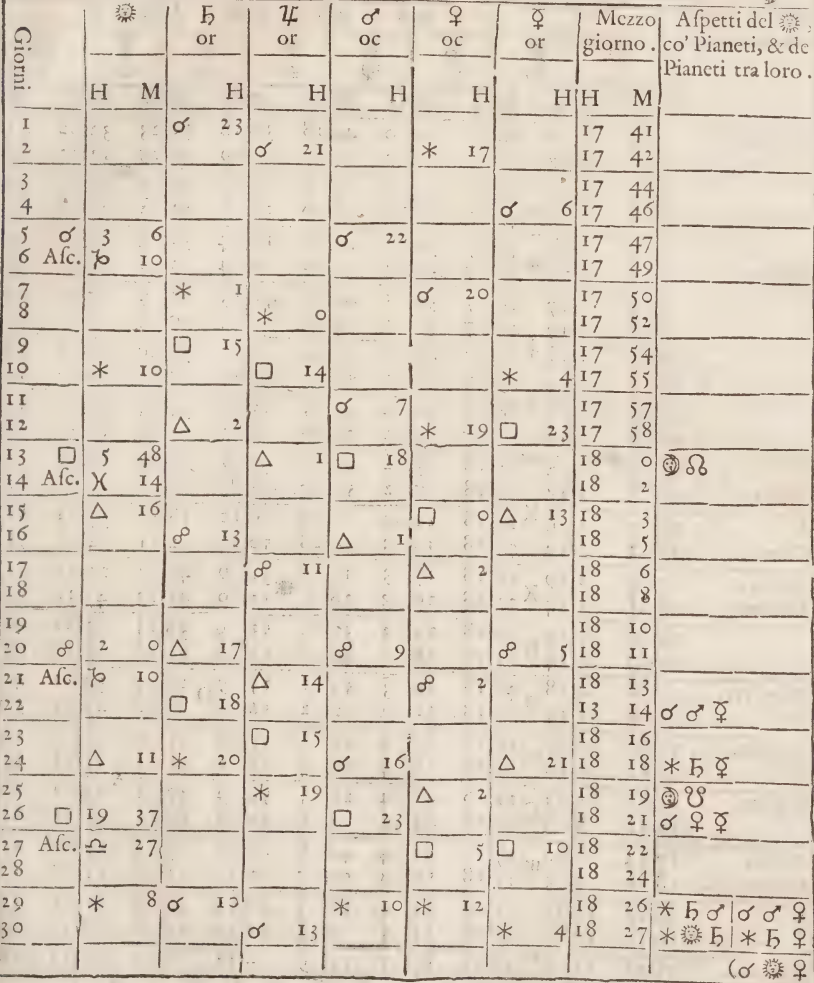 Giorni ☼ ♄ ♃ ♂ ♀ ☿ Mezzo Aſpetti del ☼
or or oc oc or giorno. co' Pianeti, & de
Pianeti tra loro.
H M H H H H H H M
1 ☌ 23 17 41
2 ☌ 21 ⚹ 17 17 42
3 17 44
4 ☌ 6 17 46
5 ☌ 3 6 ☌ 22 17 47
6 Aſc. ♑ 10 17 49
7 ⚹ 1 ☌ 20 17 50
8 ⚹ 0 17 52
9 □ 15 17 54
10 ⚹ 10 □ 14 ⚹ 4 17 55
11 ☌ 7 17 57
12 △ 2 ⚹ 19 □ 23 17 58
13 □ 5 48 △ 1 □ 18 18 0 ☽ ☊
14 Aſc. ♓ 14 18 2
15 △ 16 □ 0 △ 13 18 3
16 ☍ 13 △ 1 18 5
17 ☍ 11 △ 2 18 6
18 18 8
19 18 10
20 ☍ 2 0 △ 17 ☍ 9 ☍ 5 18 11
21 Aſc. ♑ 10 △ 14 ☍ 2 18 13
22 □ 18 13 14 ☌ ♂ ☿
23 □ 15 18 16
24 △ 11 ⚹ 20 ☌ 16 △ 21 18 18 ⚹ ♄ ☿
25 ⚹ 19 △ 2 18 19 ☽ ☋
26 □ 19 37 □ 23 18 21 ☌ ♀ ☿
27 Aſc. ♎ 27 □ 5 □ 10 18 22
28 18 24
29 ⚹ 8 ☌ 13 ⚹ 10 ⚹ 12 18 26 ⚹ ♄ ♂ | ☌ ♂ ♀
30 ☌ 13 ⚹ 4 18 27 ⚹ ☼ ♄ | ⚹ ♄ ♀
(☌ ☼ ♀